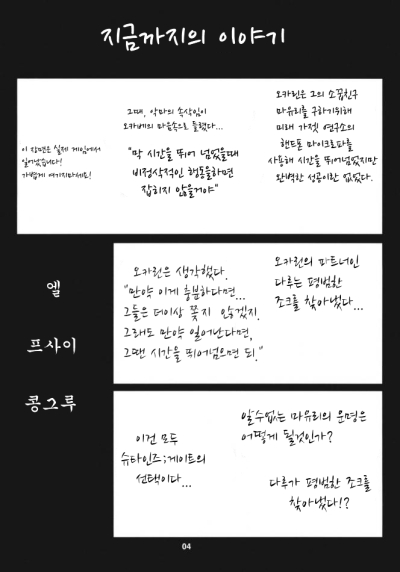 지금까지의 이야기
오카린은 그의 소꿉친구
마유리를 구하기위해
미래 가젯 연구소의
핸드폰 마이크로파를
사용해 시간을 뛰어넘었지만
완벽한 성공이란 없었다.
그때, 악마의 속삭임이
오카베의 마음속으로 들렸다...
"막 시간을 뛰어 넘었을때
비정상적인 행동을하면
잡히지 않을거야"
이 장면은 실제 게임에서
일어났습니다!
가볍게 여기지마세요!
오카린의 파트너인
다루는 평범한
조크를 찾아냈다...
오카린은 생각했다.
"만약 이게 충분하다면...
그들은 더이상 쫓지 않겠지.
그래도 만약 일어난다면,
그땐 시간을 뛰어넘으면 되."
알수없는 마유리의 운명은
어떻게 될것인가?
다루가 평범한 조크를
찾아냈다!?
이건 모두
슈타인즈;게이트의
선택이다...
엘
프사이
콩그루
04